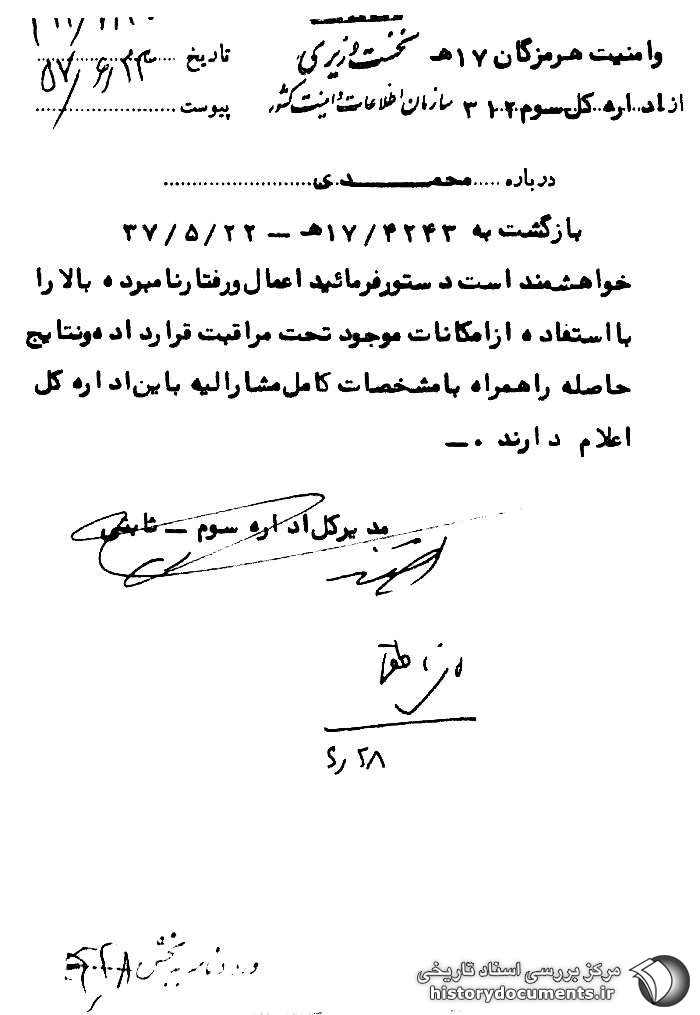 نخست وزیری
وامنیت هرمزگان ۱۷هـ
تاریخ ۵۷/۶/۲۳
از اداره کل سوم ۳۱۲
سازمان اطلاعات و امنیت کشور
پیوست
درباره محمـــدی
بازگشت به ۱۷/۴۲۴۳هـ ــ ۳۷/۵/۲۲
خواهشمند است دستورفرمائید اعمال ورفتارنامبرده بالا را
بااستفاده ازامکانات موجود تحت مراقبت قرارداده ونتایج
حاصله راهمراه بامشخصات کامل مشارالیه باین اداره کل
اعلام دارند ۰ــ
مدیرکل اداره سوم ــ ثابتی
۶/۲۸
ورود نامه به بخش
مرکز بررسی اسناد تاریخی
historydocuments.ir